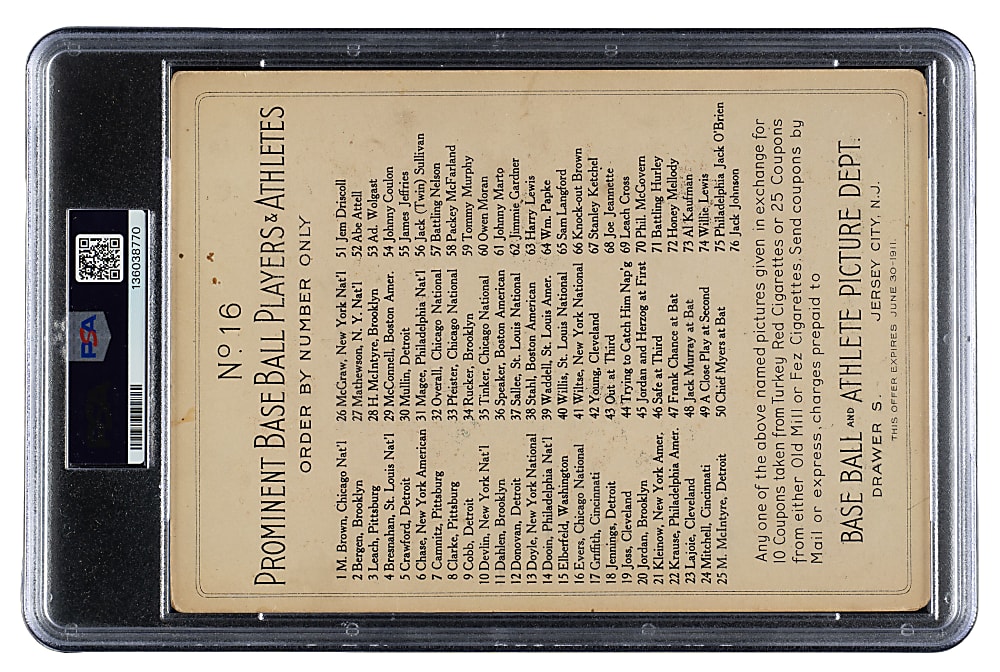 PSA
136038770
No. 16
PROMINENT BASE BALL PLAYERS & ATHLETES
ORDER BY NUMBER ONLY
1 M. Brown, Chicago Nat'l
2 Bergen, Brooklyn
3 Leach, Pittsburg
4 Bresnahan, St. Louis Nat'l
5 Crawford, Detroit
6 Chase, New York American
7 Camnitz, Pittsburg
8 Clarke, Pittsburg
9 Cobb, Detroit
10 Devlin, New York Nat'l
11 Dahlen, Brooklyn
12 Donovan, Detroit
13 Doyle, New York National
14 Dooin, Philadelphia Nat'l
15 Elberfeld, Washington
16 Evers, Chicago National
17 Griffith, Cincinnati
18 Jennings, Detroit
19 Joss, Cleveland
20 Jordan, Brooklyn
21 Kleinow, New York Amer.
22 Krause, Philadelphia Amer.
23 Lajoie, Cleveland
24 Mitchell, Cincinnati
25 M. McIntyre, Detroit
26 McGraw, New York Nat'l
27 Mathewson, N. Y. Nat'l
28 H. McIntyre, Brooklyn
29 McConnell, Boston Amer.
30 Mullin, Detroit
31 Magee, Philadelphia Nat'l
32 Overall, Chicago National
33 Pfeister, Chicago National
34 Rucker, Brooklyn
35 Tinker, Chicago National
36 Speaker, Boston American
37 Sallee, St. Louis National
38 Stahl, Boston American
39 Waddell, St. Louis Amer.
40 Willis, St. Louis National
41 Wiltse, New York National
42 Young, Cleveland
43 Out at Third
44 Trying to Catch Him Nap'g
45 Jordan and Herzog at First
46 Safe at Third
47 Frank Chance at Bat
48 Jack Murray at Bat
49 A Close Play at Second
50 Chief Myers at Bat
51 Jem Driscoll
52 Abe Attell
53 Ad. Wolgast
54 Johnny Coulon
55 James Jeffries
56 Jack (Twin) Sullivan
57 Battling Nelson
58 Packey McFarland
59 Tommy Murphy
60 Owen Moran
61 Johnny Marto
62 Jimmie Gardner
63 Harry Lewis
64 Wm. Papke
65 Sam Langford
66 Knock-out Brown
67 Stanley Ketchel
68 Joe Jeannette
69 Leach Cross
70 Phil. McGovern
71 Battling Hurley
72 Honey Mellody
73 Al Kaufman
74 Willie Lewis
75 Philadelphia Jack O'Brien
76 Jack Johnson
Any one of the above named pictures given in exchange for
10 Coupons taken from Turkey Red Cigarettes or 25 Coupons
from either Old Mill or Fez Cigarettes. Send coupons by
Mail or express, charges prepaid to
BASE BALL AND ATHLETE PICTURE DEPT.
DRAWER S. JERSEY CITY, N.J.
THIS OFFER EXPIRES JUNE 30-1911.